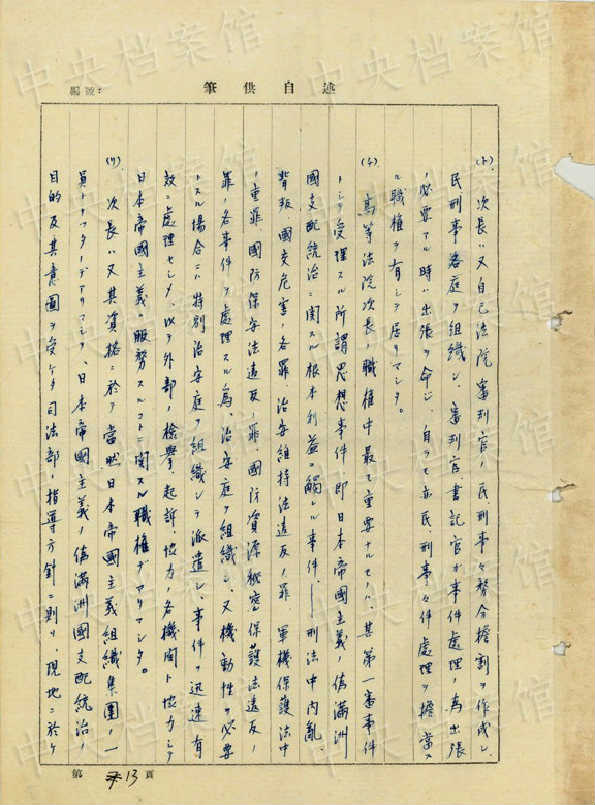 編號：
筆供自述
(ト)、次長ハ又自己法院審判官ノ民刑事々務分擔割ヲ作成シ、
民刑事各庭ヲ組織シ、審判官書記官ガ事件處理ノ為出張
ノ必要アル時ハ出張ヲ命ジ、自ラモ亦民、刑事々件處理ヲ擔當ス
ル職權ヲ有シテ居リマシタ。
(チ)、高等法院次長ノ職權中最モ重要ナルモノハ、其第一審事件
トシテ受理スル所謂思想事件、即日本帝國主義ノ偽滿洲
國支配統治ニ関スル根本利益ニ觸レル事件、——刑法中內亂、
背叛、國交危害ノ各罪、治安維持法違反ノ罪、軍機保護法中
ノ重罪、國防保安法違反ノ罪、國防資源秘密保護法違反ノ
罪ノ各事件ヲ處理スル為、治安庭ヲ組織シ、又機動性ヲ必要
トスル場合ニハ特別治安庭ヲ組織シテ派遣シ、事件ヲ迅速有
效ニ處理セシメ、以テ外部ノ檢擧、起訴、協力ノ各機関ト協力シテ
日本帝國主義ニ服務スルコトニ関スル職權デアリマシタ。
(リ)、次長ハ又其資格ニ於テ當然日本帝國主義組織集團ノ一
員トナッタノデアリマシテ、日本帝國主義ノ偽滿洲國支配統治ノ
目的及其意圖ヲ受ケタ司法部ノ指導方針ニ則リ、現地ニ於ケ
第13頁
中央档案馆